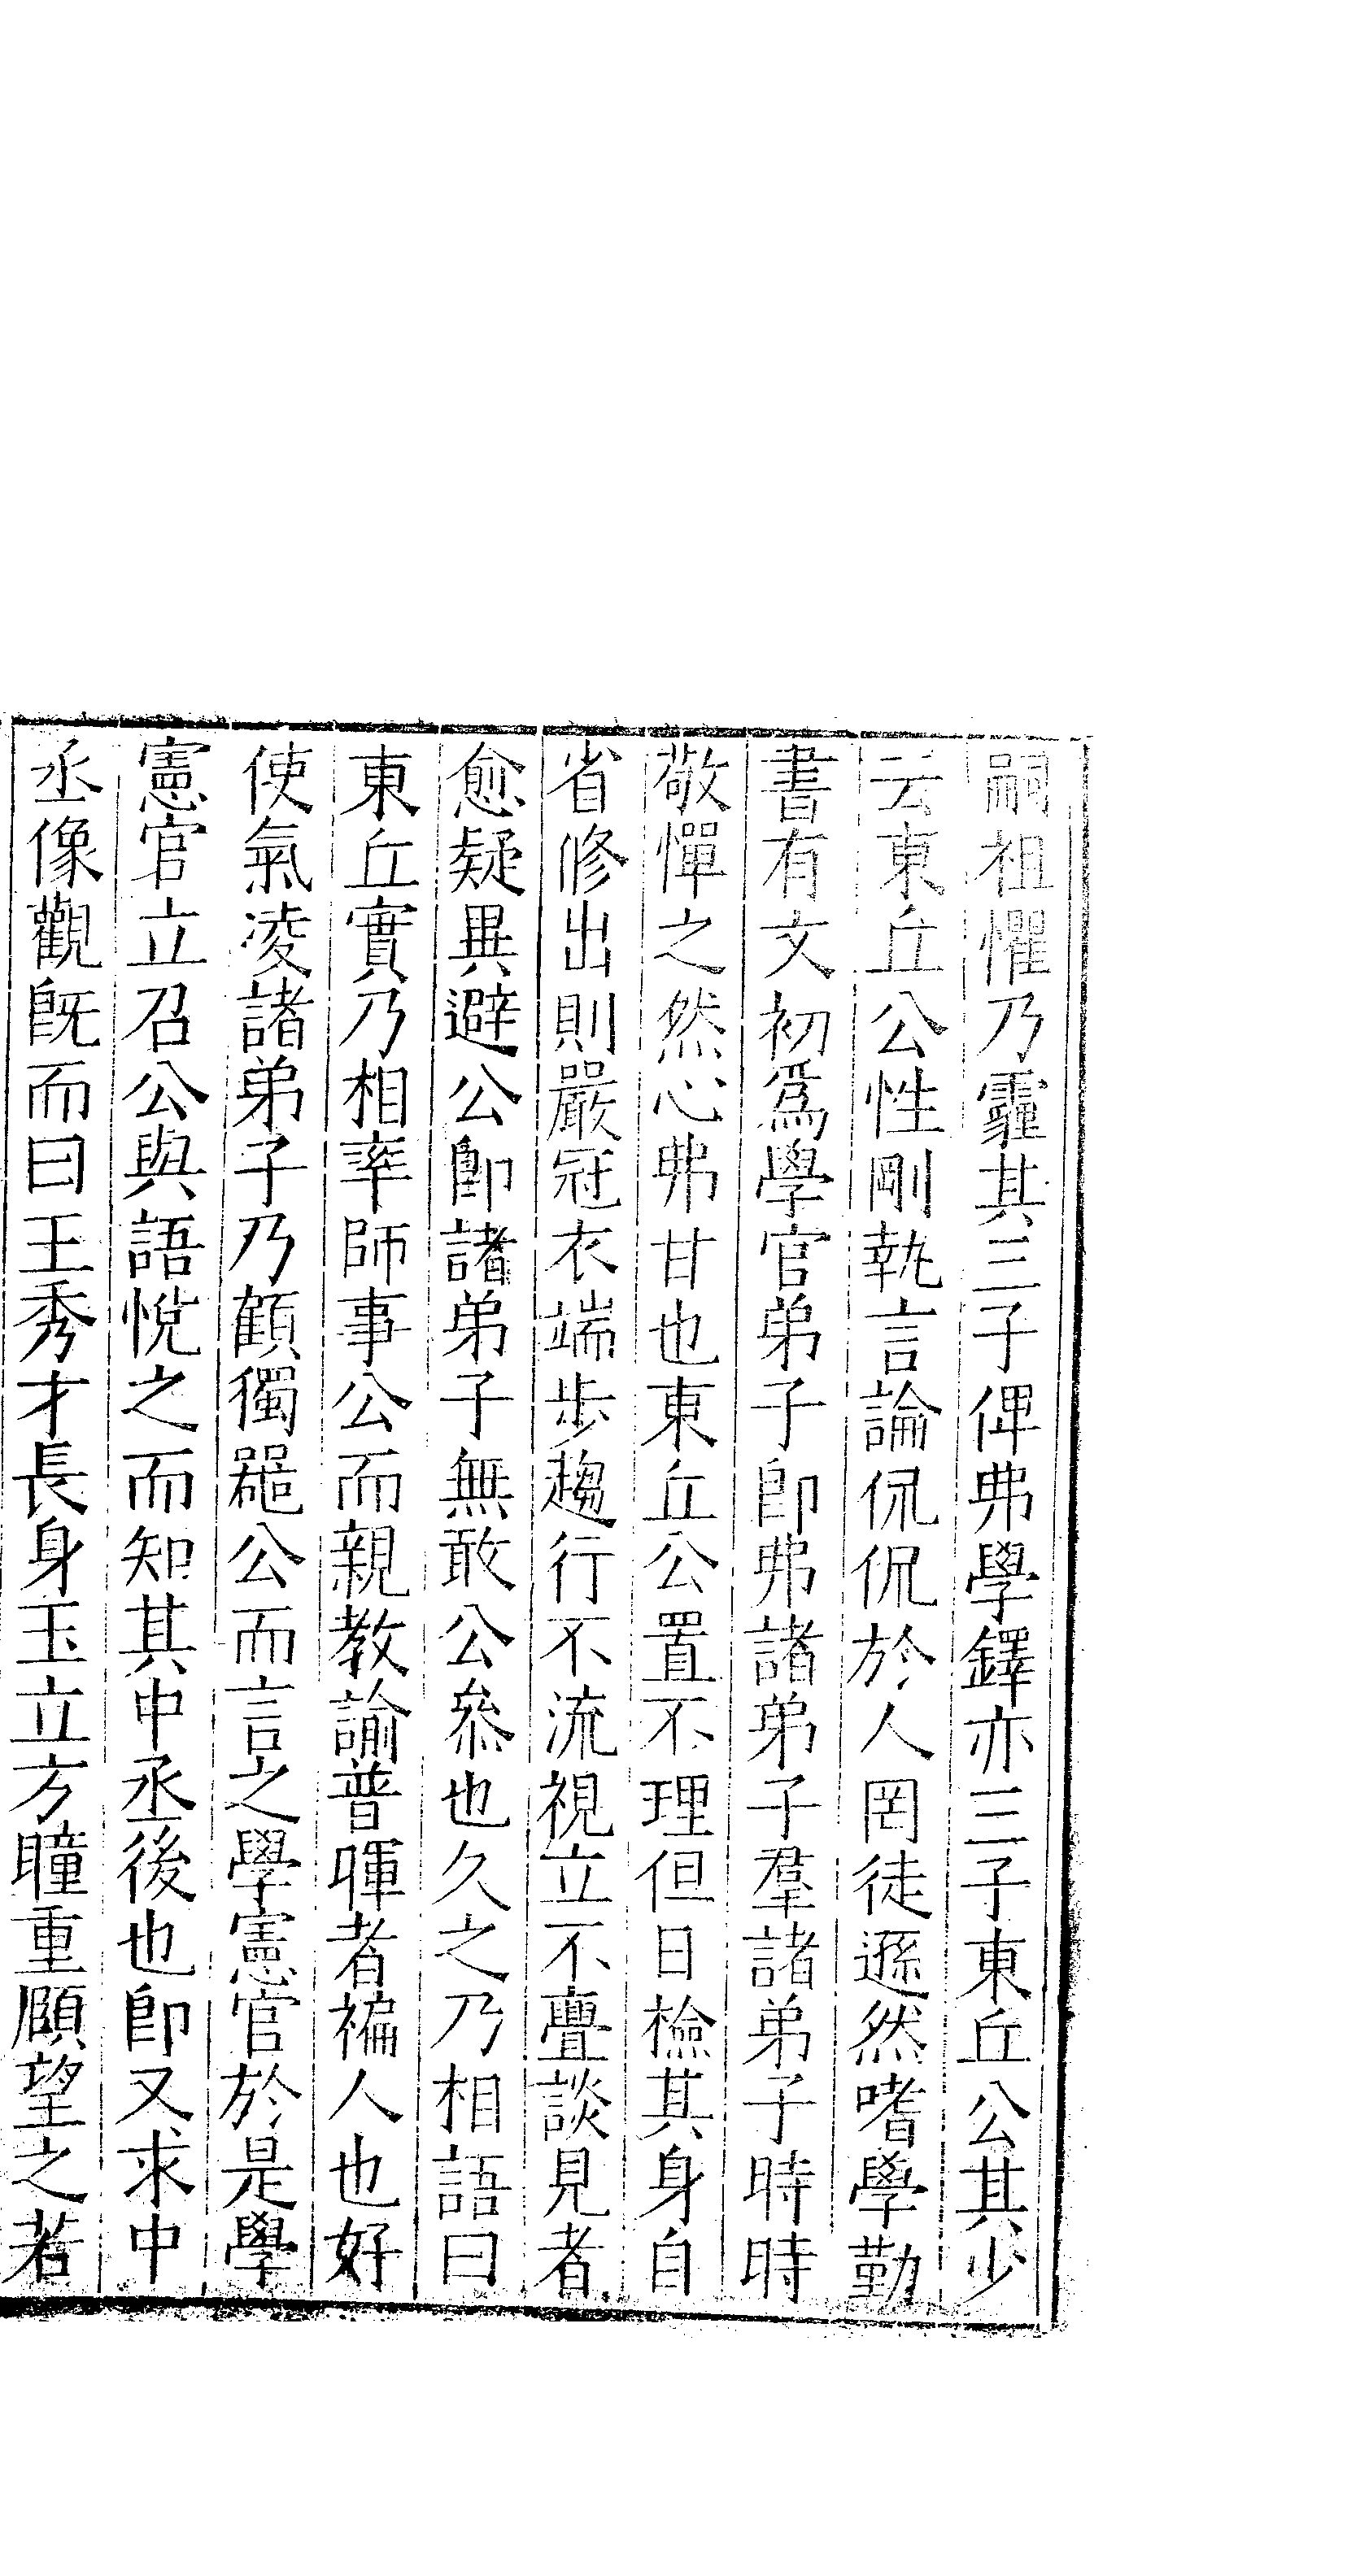 嗣祖懼乃霾其三子俾弗學鐸亦三子東丘公其少
云東丘公性剛執言論侃侃於人罔徒遜然嗜學勤
書有文初爲學官弟子卽弗諸弟子羣諸弟子時時
敬憚之然心弗甘也東丘公置不理但日檢其身自
省修出則嚴冠衣端步趨行不流視立不亹談見者
愈疑異避公卽諸弟子無敢公叅也久之乃相語曰
東丘實乃相率師事公而親教諭普暉者褊人也好
使氣凌諸弟子乃顧獨毣公而言之學憲官於是學
憲官立召公與語悅之而知其中丞後也卽又求中
丞像觀旣而曰王秀才長身玉立方瞳重頤望之若